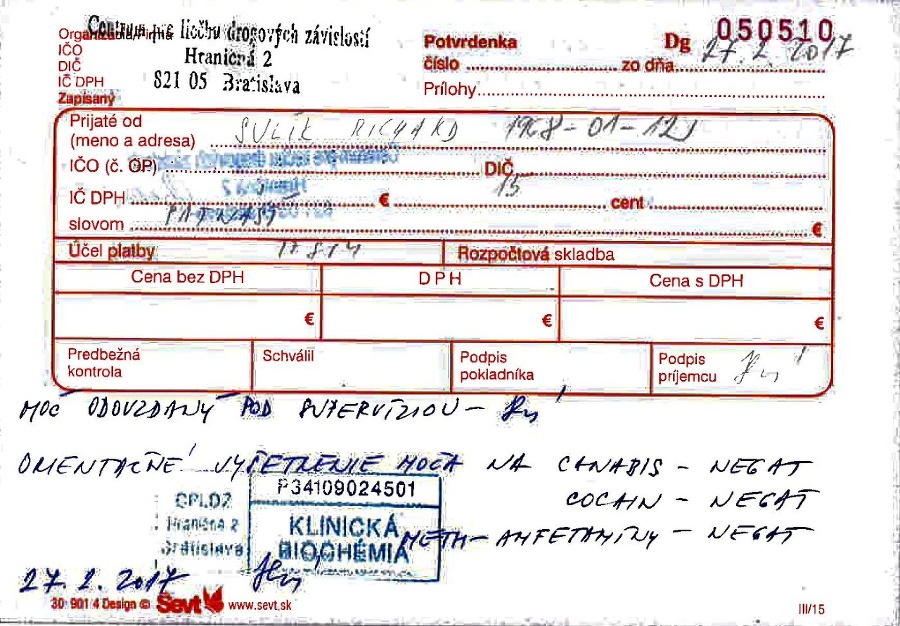 Organizácia/Firma Centrum pre liečbu drogových závislostí
IČO Hraničná 2
DIČ 821 05 Bratislava
IČ DPH
Zapísaný
Potvrdenka Dg 050510
číslo zo dňa 27.2.2017
Prílohy
Prijaté od SULÍK RICHARD 1968-01-12
(meno a adresa)
IČO (č. OP) DIČ
IČ DPH € 15 cent
slovom PÄTNÁSŤ €
Účel platby Rozpočtová skladba
Cena bez DPH DPH Cena s DPH
€ € €
Predbežná kontrola Schválil Podpis pokladníka Podpis príjemcu
MOČ ODOVZDANÝ POD SUPERVÍZIOU -
ORIENTAČNÉ VYŠETRENIE MOČA NA CANABIS - NEGAT
COCAIN - NEGAT
METH-AMFETAMÍNY - NEGAT
P34109024501
CPLDZ
Hraničná 2
Bratislava
KLINICKÁ
BIOCHÉMIA
27.2.2017
30 901 4 Design © Ševt www.sevt.sk III/15